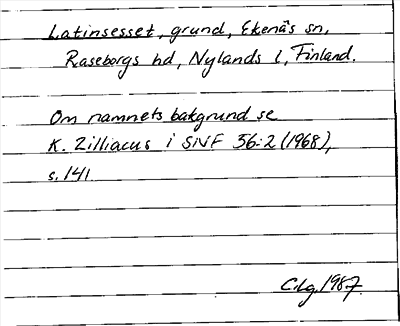 Latinsesset, grund, Ekenäs sn,
Raseborgs hd, Nylands l, Finland.
Om namnets bakgrund se
K. Zilliacus i SNF 56:2 (1968),
s. 141
C.lg. 1987.